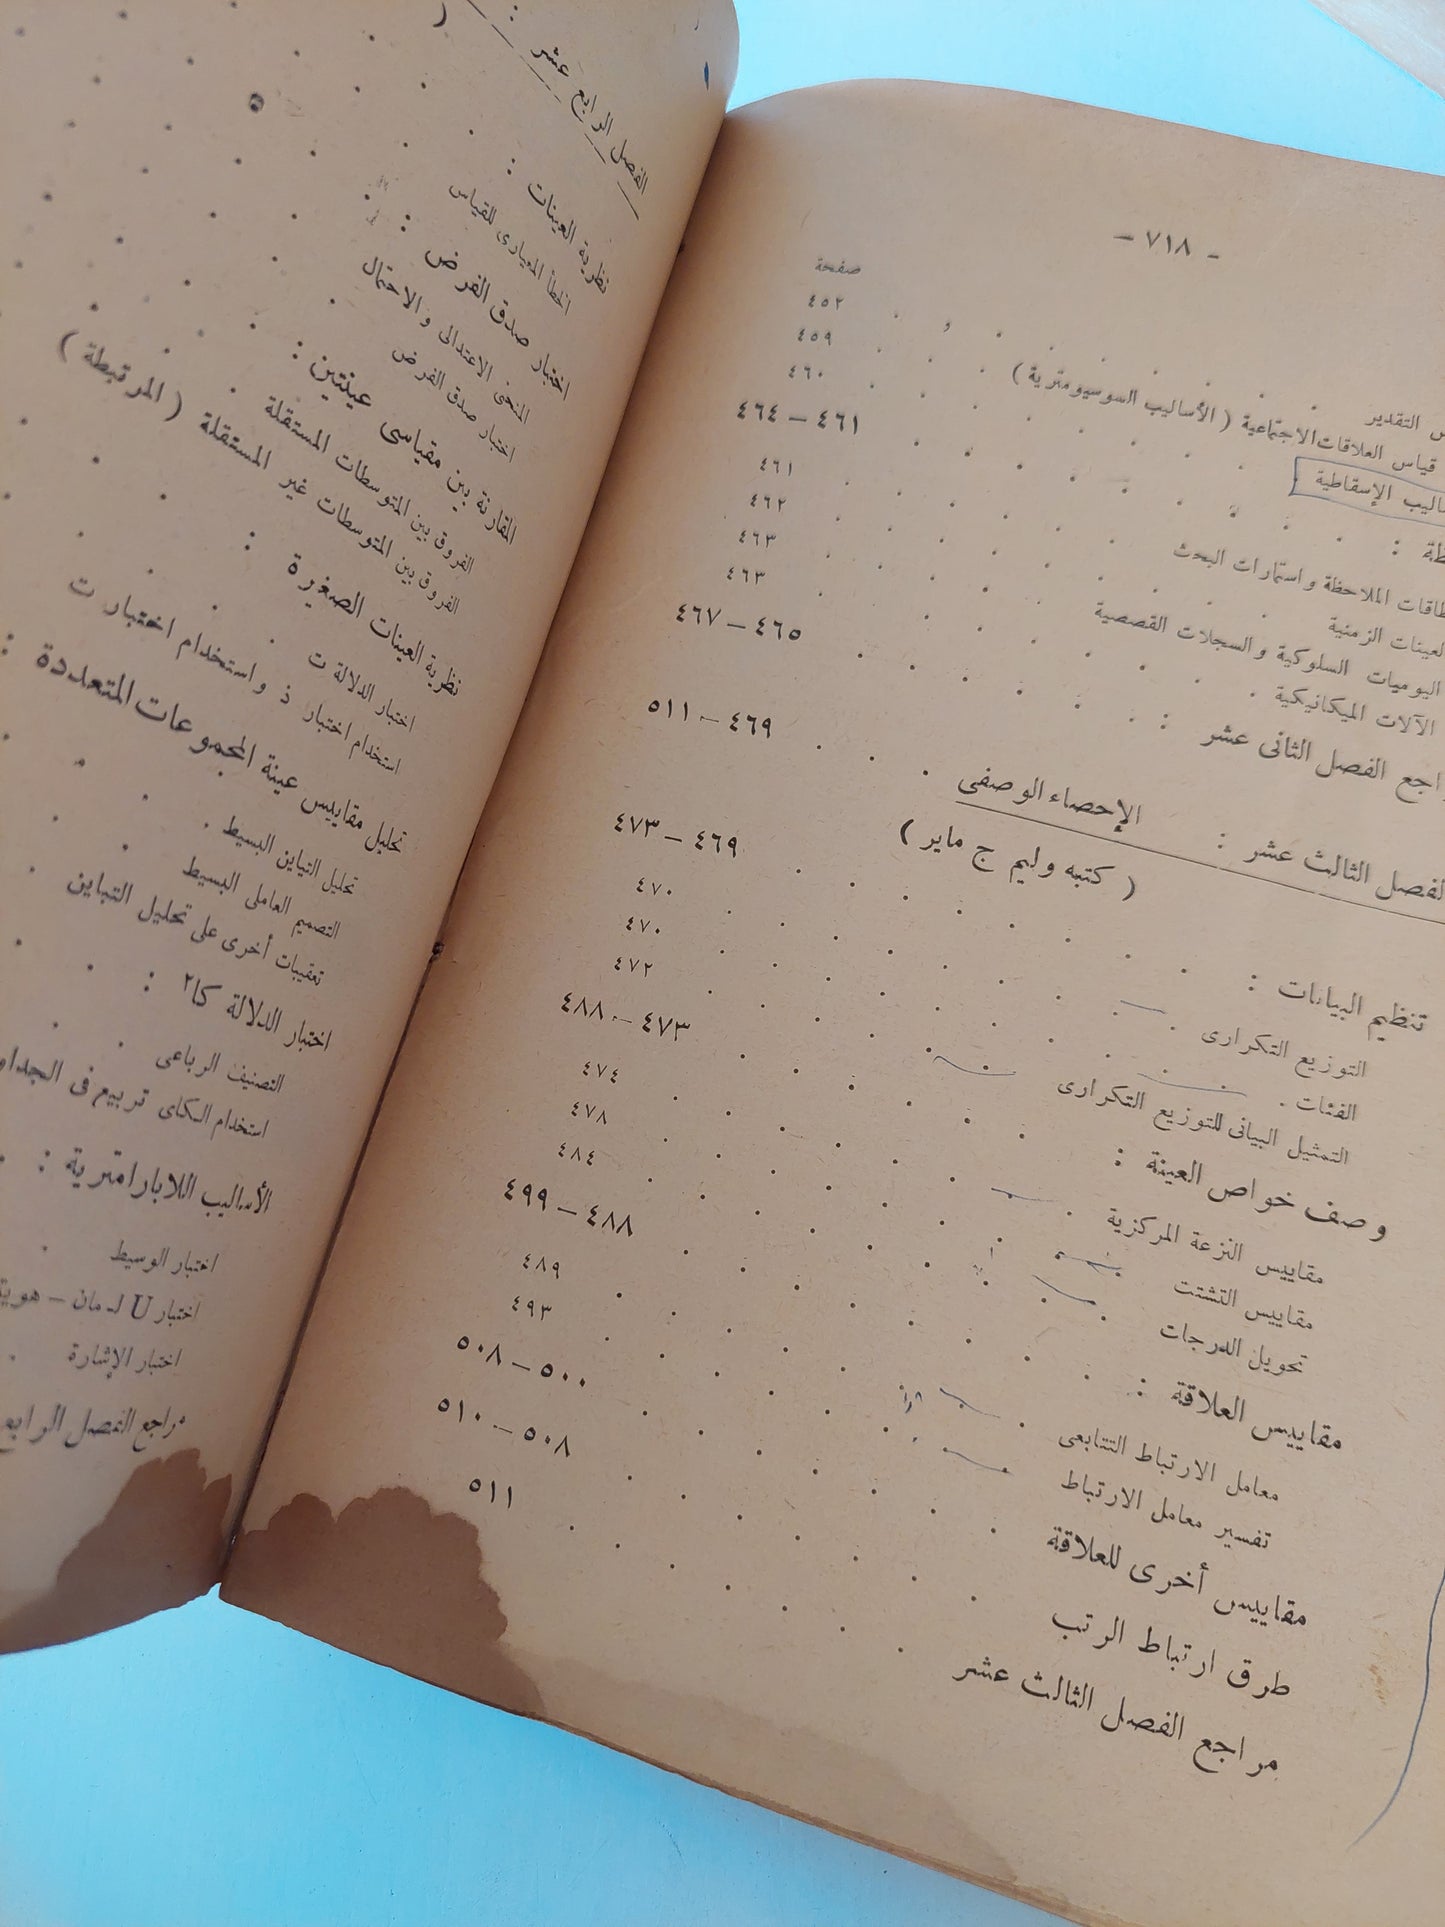 - ٧١٨ -
صفحة
التقدير . . . . . ٤٥٢
قياس العلاقات الاجتماعية ( الأساليب السوسيومترية ) . . ٤٥٩
الإسقاطية . . . . . ٤٦٠
: . . . . . ٤٦١ — ٤٦٤
الملاحظة واستمارات البحث . . . . ٤٦١
العينات الزمنية . . . . . ٤٦٢
اليوميات السلوكية والسجلات القصصية . . . . ٤٦٣
الآلات الميكانيكية . . . . . ٤٦٣
مراجع الفصل الثانى عشر : . . . . . ٤٦٥ — ٤٦٧
الفصل الثالث عشر : الإحصاء الوصفى . . . ٤٦٩ — ٥١١
( كتبه وليم ج ماير )
تنظيم البيانات : . . . . . ٤٦٩ — ٤٧٣
التوزيع التكرارى . . . . . ٤٧٠
الفئات . . . . . ٤٧٠
التمثيل البيانى للتوزيع التكرارى . . . . ٤٧٢
وصف خواص العينة : . . . . . ٤٧٣ — ٤٨٨
مقاييس النزعة المركزية . . . . . ٤٧٤
مقاييس التشتت . . . . . ٤٧٨
تحويل الدرجات . . . . . ٤٨٤
مقاييس العلاقة : . . . . . ٤٨٨ — ٤٩٩
معامل الارتباط التتابعى . . . . . ٤٨٩
تفسير معامل الارتباط . . . . . ٤٩٣
مقاييس أخرى للعلاقة . . . . . ٥٠٠ — ٥٠٨
طرق ارتباط الرتب . . . . . ٥٠٨ — ٥١٠
مراجع الفصل الثالث عشر . . . . . ٥١١
الفصل الرابع عشر :
نظرية العينات :
الخطأ المعيارى للقياس
اختبار صدق الفرض :
المنحنى الاعتدالى والاحتمال
اختبار صدق الفرض
المقارنة بين مقياسى عينتين :
الفروق بين المتوسطات المستقلة
الفروق بين المتوسطات غير المستقلة ( المرتبطة )
نظرية العينات الصغيرة :
اختبار الدلالة ت
استخدام اختبار ذ واستخدام اختبار ت
تحليل مقاييس عينة المجموعات المتعددة :
تحليل التباين البسيط
التصميم العاملى البسيط
تعقيبات أخرى على تحليل التباين
اختبار الدلالة كا٢ :
التصنيف الرباعى
استخدام الكاى تربيع فى
الأساليب اللابارامترية :
اختبار الوسيط
اختبار U لـ مان —
اختبار الإشارة
مراجع الفصل الرابع